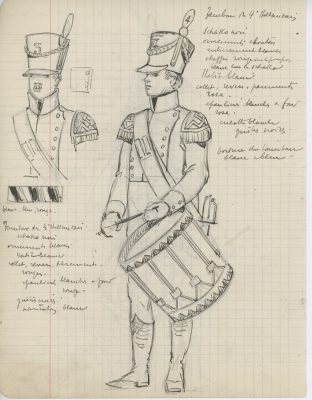 Tambour du 4e Hollandais
Schako noir
ornements
entièrement blancs
rouge
blanc sur le schako
Habit blanc
collet, revers, parements
rose.
épaulettes blanches à fond
rose.
culotte blanche
guêtres noires
bordure du tambour
blanc bleu.
bleu. bleu. rouge.
Tambour du 4e Hollandais
schako noir
ornements blancs
habit blanc
collet, revers, parements
rouges.
épaulettes blanches à fond
rouge.
guêtres noires
blanc